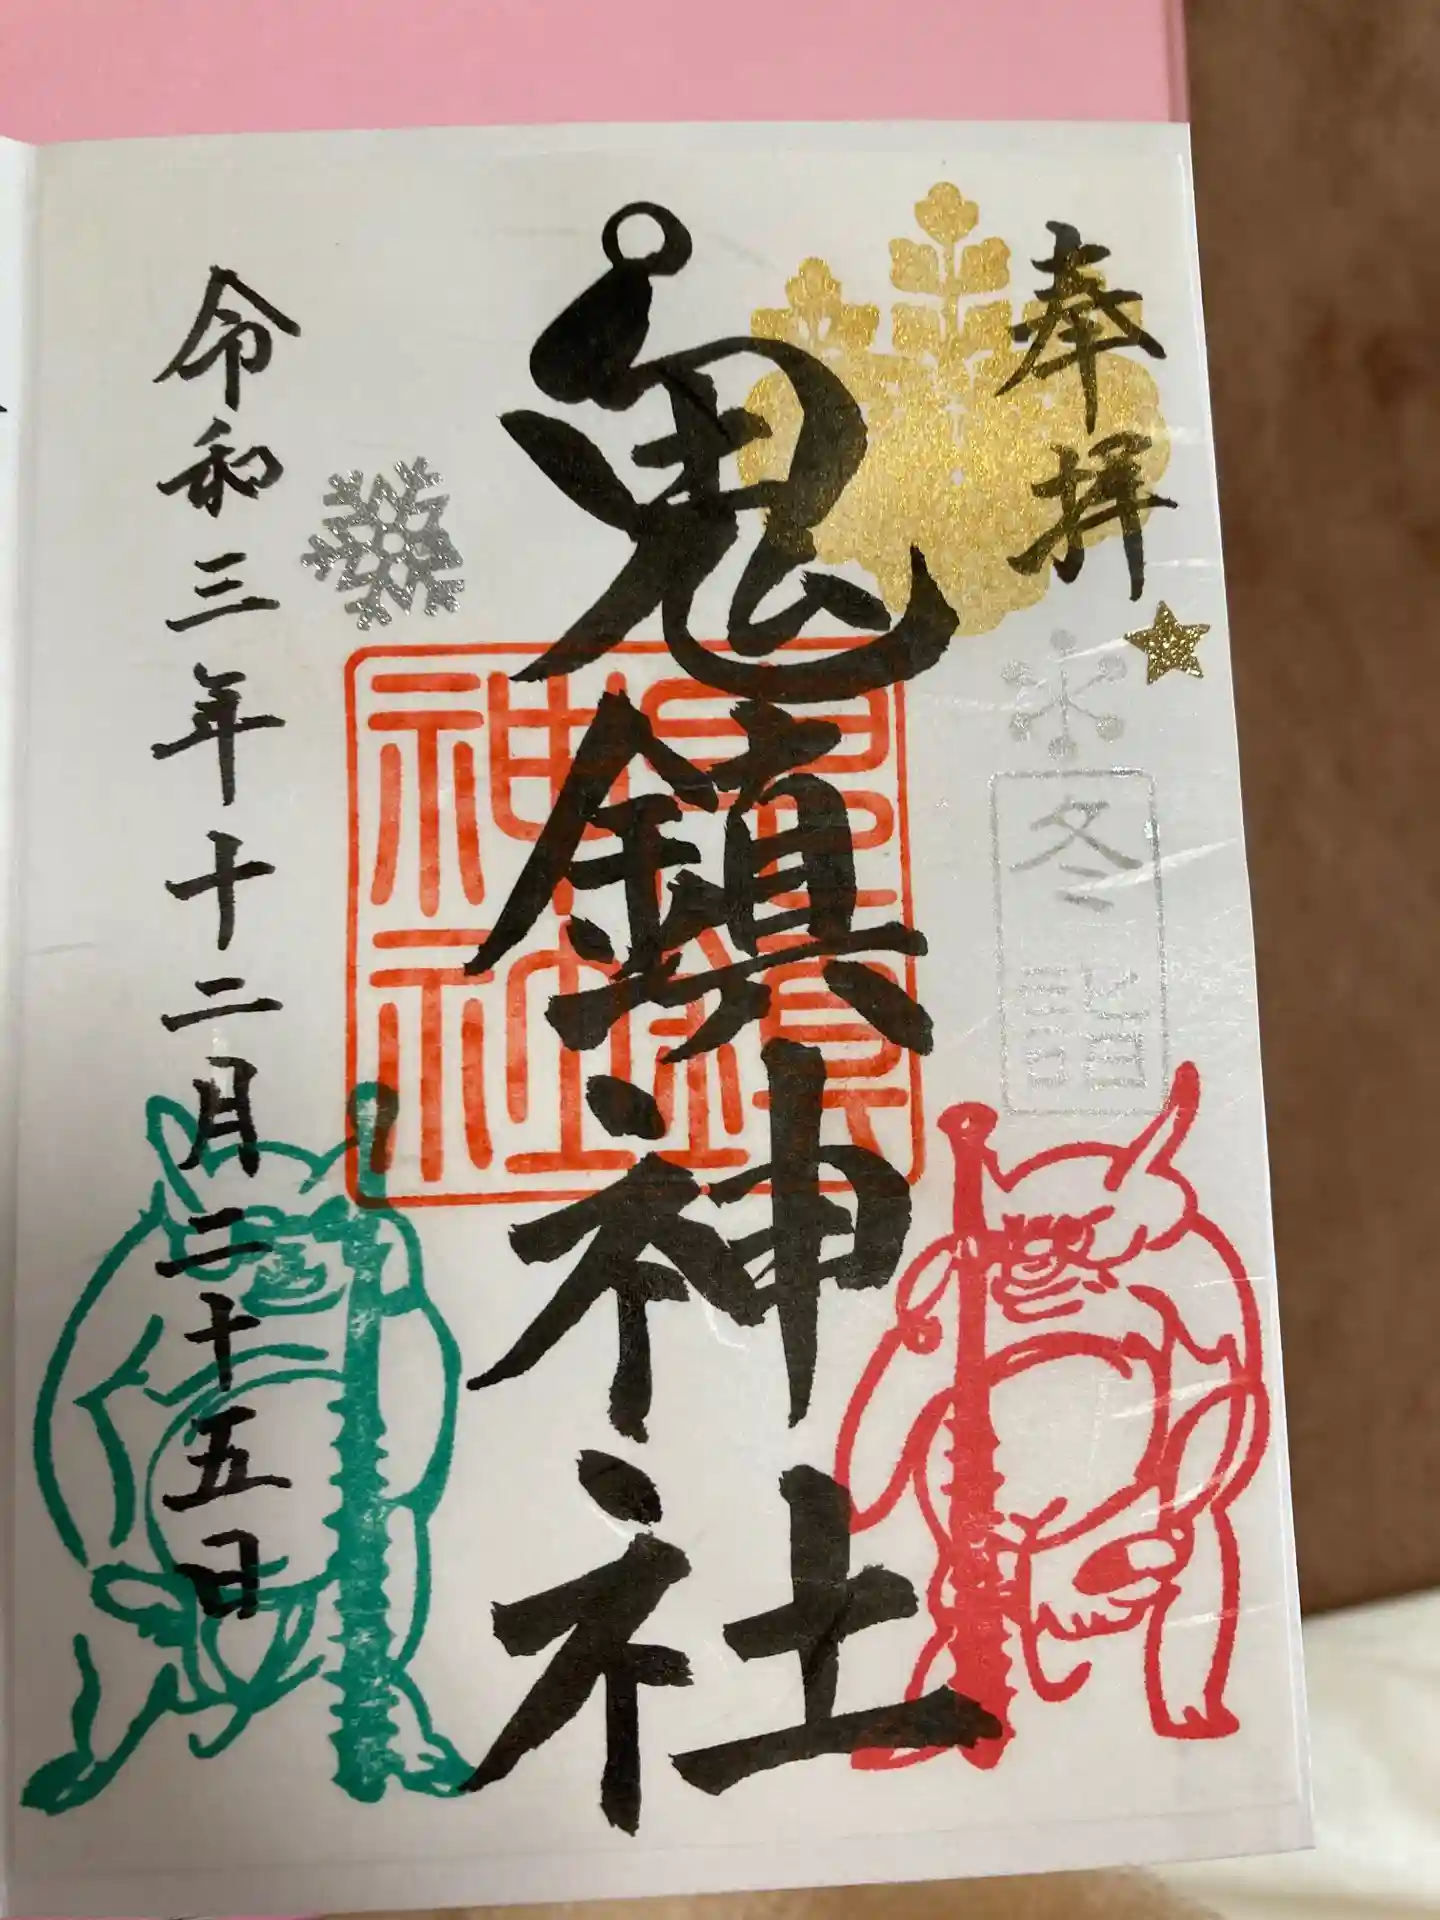 奉拝
冬詣
鬼鎮神社
鬼鎮
神社
令和三年十二月二十五日